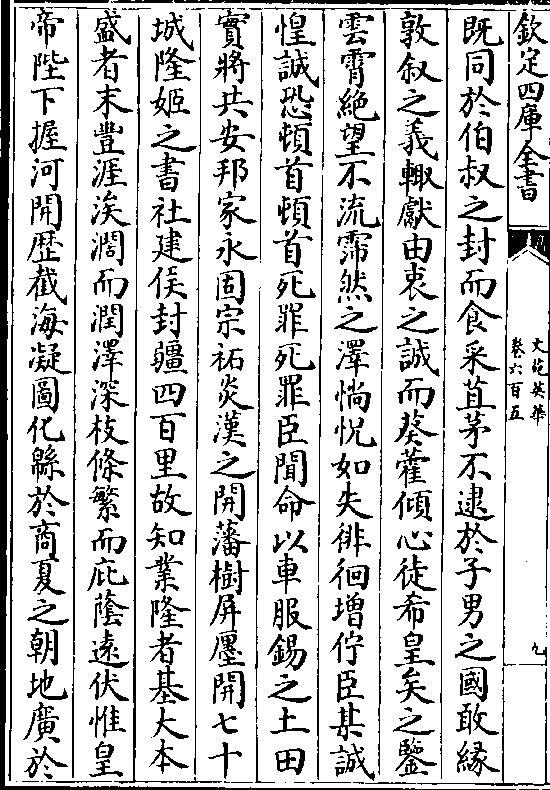 欽定四庫全書
文苑英華
卷六百五
九
既同於伯叔之封而食采苴茅不逮於子男之國敢緣
敦叙之義輙獻由衷之誠而葵藿傾心徒希皇矣之鑒
雲霄絶望不流霈然之澤惝怳如失徘徊增佇臣某誠
惶誠恐頓首頓首死罪死罪臣聞命以車服錫之土田
實將共安邦家永固宗祏炎漢之開藩樹屏㕓開七十
城隆姬之書社建侯封疆四百里故知業隆者基大本
盛者末豐涯涘濶而潤澤深枝條繁而庇蔭遠伏惟皇
帝陛下握河開歴截海凝圖化緜於商夏之朝地廣於